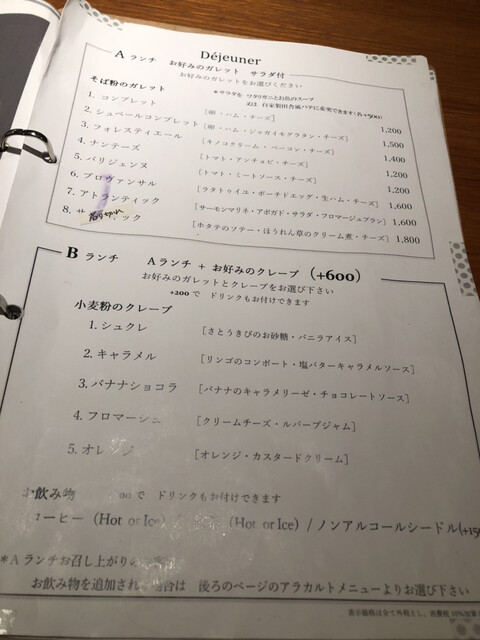 Déjeuner
A ランチ お好みのガレット サラダ付
お好みのガレットをお選びください
そば粉のガレット
*サラダを ワタリガニとお魚のスープ
又は 自家製田舎風パテに変更できます(各+500)
1. コンプレット [卵・ハム・チーズ] 1,200
2. シュペールコンプレット [卵・ハム・ジャガイモグラタン・チーズ] 1,500
3. フォレスティエール [キノコクリーム・ベーコン・チーズ] 1,400
4. ナンテーズ [トマト・アンチョビ・チーズ] 1,200
5. パリジェンヌ [トマト・ミートソース・チーズ] 1,200
6. プロヴァンサル [ラタトゥイユ・ポーチドエッグ・生ハム・チーズ] 1,600
7. アトランティック [サーモンマリネ・アボガド・サラダ・フロマージュブラン] 1,600
8. ック [ホタテのソテー・ほうれん草のクリーム煮・チーズ] 1,800
B ランチ Aランチ + お好みのクレープ (+600)
お好みのガレットとクレープをお選び下さい
+200 で ドリンクもお付けできます
小麦粉のクレープ
1. シュクレ [さとうきびのお砂糖・バニラアイス]
2. キャラメル [リンゴのコンポート・塩バターキャラメルソース]
3. バナナショコラ [バナナのキャラメリーゼ・チョコレートソース]
4. フロマージュ [クリームチーズ・ルバーブジャム]
5. オレンジ [オレンジ・カスタードクリーム]
お飲み物 00 で ドリンクもお付けできます
コーヒー (Hot or Ice) (Hot or Ice) / ノンアルコールシードル(+150
*Aランチお召し上がりの
お飲み物を追加され 場合は 後ろのページのアラカルトメニューよりお選び下さい
表示価格は全て外税とし、消費税 10%加算